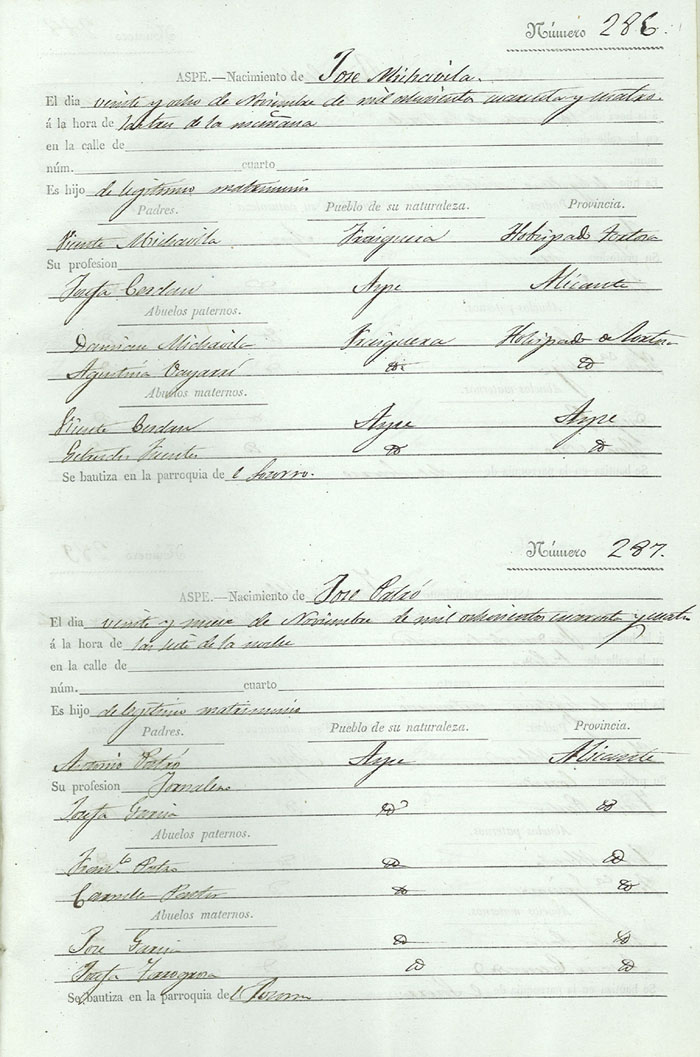 Número 286.
ASPE.—Nacimiento de Jose Michavila.
El dia veinte y ocho de Noviembre de mil ochocientos cuarenta y cuatro.
á la hora de las tres de la mañana
en la calle de
núm. cuarto
Es hijo de legitimo matrimonio
Padres. Pueblo de su naturaleza. Provincia.
Vicente Michavila Traiguera Hobispado Tortosa
Su profesion
Josefa Cerdan Aspe Alicante
Abuelos paternos.
Damian Michavila Traiguera Hobispado de Tortosa
Agustina id. id
Abuelos maternos.
Vicente Cerdan Aspe Aspe
Vicente id id
Se bautiza en la parroquia de el Socorro.
Número 287.
ASPE.—Nacimiento de Jose
El dia veinte y nueve de Noviembre de mil ochocientos cuarenta y cuatro
á la hora de las siete de la noche
en la calle de
núm. cuarto
Es hijo de legitimo matrimonio
Padres. Pueblo de su naturaleza. Provincia.
Antonio Aspe Alicante
Su profesion Jornalero
Josefa Garcia id id
Abuelos paternos.
Franco id id
id id
Abuelos maternos.
Jose Garcia id id
Josefa id id
Se bautiza en la parroquia de el Socorro